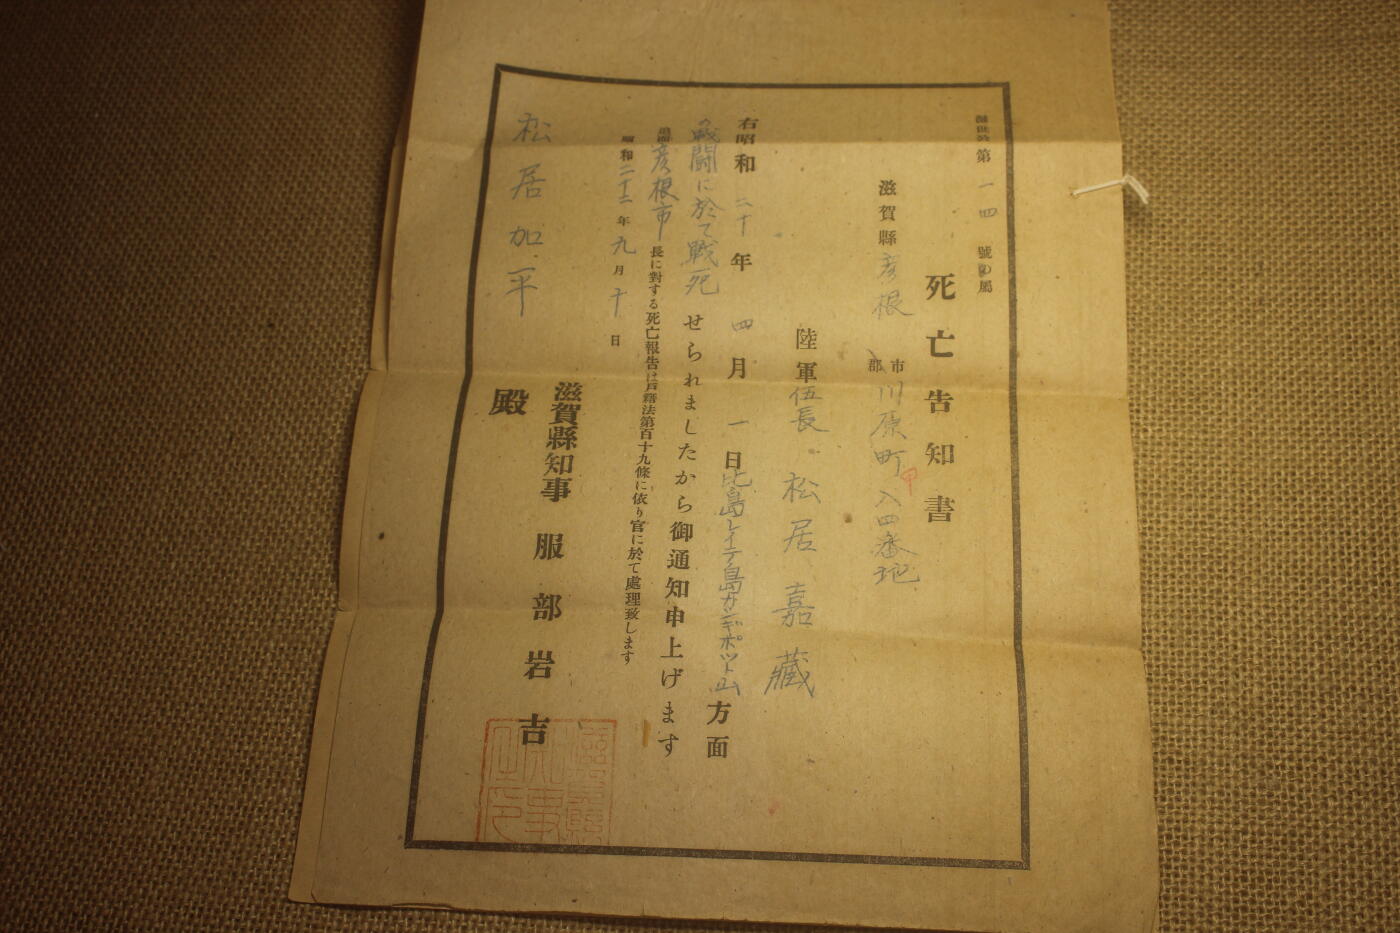 第一四號の属
死亡告知書
滋賀縣彦根市郡川原町八四番地
陸軍伍長 松居嘉藏
右昭和二十年四月一日比島レイテ島カンギポット山方面
の戦闘に於て戦死せられましたから御通知申上げます
彦根市長に對する死亡報告は戸籍法第百十九條に依り官に於て處理致します
昭和二十二年九月十日
滋賀縣知事 服部岩吉
松居加平殿